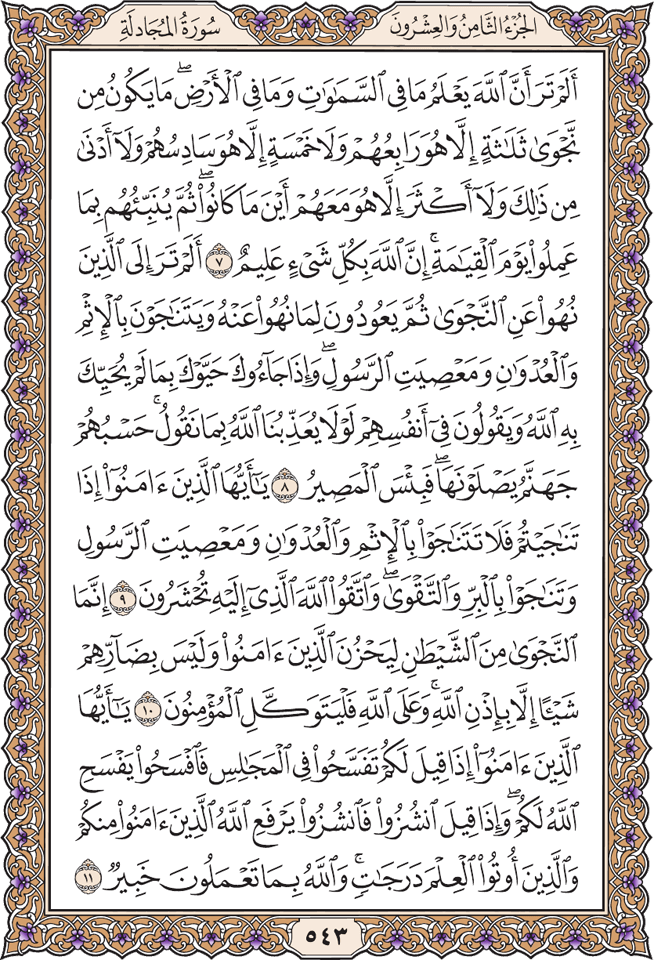 الجُزْءُ الثَّامِنُ وَالعِشْرُونَ
سُورَةُ المُجَادلَةِ
أَلَمْ تَرَ أَنَّ ٱللَّهَ يَعْلَمُ مَا فِي ٱلسَّمَٰوَٰتِ وَمَا فِي ٱلْأَرْضِۖ مَا يَكُونُ مِن
نَّجْوَىٰ ثَلَٰثَةٍ إِلَّا هُوَ رَابِعُهُمْ وَلَا خَمْسَةٍ إِلَّا هُوَ سَادِسُهُمْ وَلَآ أَدْنَىٰ
مِن ذَٰلِكَ وَلَآ أَكْثَرَ إِلَّا هُوَ مَعَهُمْ أَيْنَ مَا كَانُوا۟ۖ ثُمَّ يُنَبِّئُهُم بِمَا
عَمِلُوا۟ يَوْمَ ٱلْقِيَٰمَةِۚ إِنَّ ٱللَّهَ بِكُلِّ شَىْءٍ عَلِيمٌ ٧ أَلَمْ تَرَ إِلَى ٱلَّذِينَ
نُهُوا۟ عَنِ ٱلنَّجْوَىٰ ثُمَّ يَعُودُونَ لِمَا نُهُوا۟ عَنْهُ وَيَتَنَٰجَوْنَ بِٱلْإِثْمِ
وَٱلْعُدْوَٰنِ وَمَعْصِيَتِ ٱلرَّسُولِۖ وَإِذَا جَآءُوكَ حَيَّوْكَ بِمَا لَمْ يُحَيِّكَ
بِهِ ٱللَّهُ وَيَقُولُونَ فِىٓ أَنفُسِهِمْ لَوْلَا يُعَذِّبُنَا ٱللَّهُ بِمَا نَقُولُۚ حَسْبُهُمْ
جَهَنَّمُ يَصْلَوْنَهَاۖ فَبِئْسَ ٱلْمَصِيرُ ٨ يَٰٓأَيُّهَا ٱلَّذِينَ ءَامَنُوٓا۟ إِذَا
تَنَٰجَيْتُمْ فَلَا تَتَنَٰجَوْا۟ بِٱلْإِثْمِ وَٱلْعُدْوَٰنِ وَمَعْصِيَتِ ٱلرَّسُولِ
وَتَنَٰجَوْا۟ بِٱلْبِرِّ وَٱلتَّقْوَىٰۖ وَٱتَّقُوا۟ ٱللَّهَ ٱلَّذِىٓ إِلَيْهِ تُحْشَرُونَ ٩ إِنَّمَا
ٱلنَّجْوَىٰ مِنَ ٱلشَّيْطَٰنِ لِيَحْزُنَ ٱلَّذِينَ ءَامَنُوا۟ وَلَيْسَ بِضَآرِّهِمْ
شَيْـًٔا إِلَّا بِإِذْنِ ٱللَّهِۚ وَعَلَى ٱللَّهِ فَلْيَتَوَكَّلِ ٱلْمُؤْمِنُونَ ١٠ يَٰٓأَيُّهَا
ٱلَّذِينَ ءَامَنُوٓا۟ إِذَا قِيلَ لَكُمْ تَفَسَّحُوا۟ فِى ٱلْمَجَٰلِسِ فَٱفْسَحُوا۟ يَفْسَحِ
ٱللَّهُ لَكُمْۖ وَإِذَا قِيلَ ٱنشُزُوا۟ فَٱنشُزُوا۟ يَرْفَعِ ٱللَّهُ ٱلَّذِينَ ءَامَنُوا۟ مِنكُمْ
وَٱلَّذِينَ أُوتُوا۟ ٱلْعِلْمَ دَرَجَٰتٍۚ وَٱللَّهُ بِمَا تَعْمَلُونَ خَبِيرٌ ١١
٥٤٣